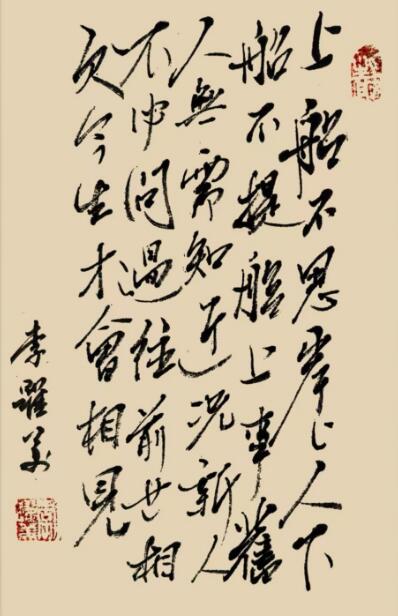 上船不思岸上人下
船不提船上事舊
人無需知近況新人
不必问過往前世相
欠今生才會相見
李躍